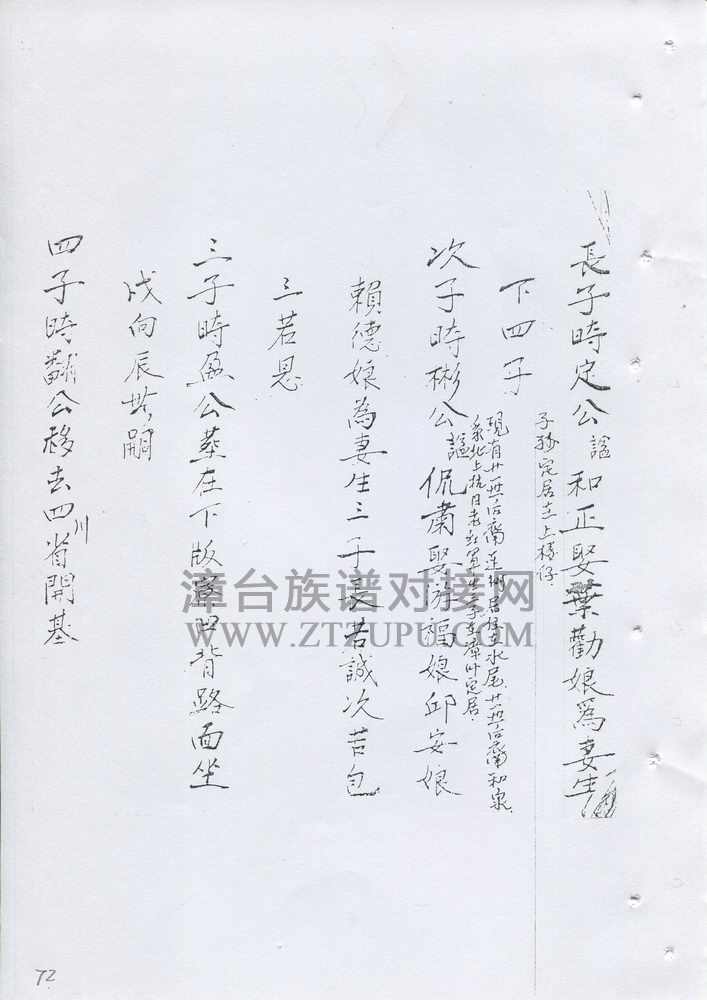 長子時定公謚和正娶葉勸娘為妻生
子孫定居在上樓仔.
下四子
現有廿世后裔 居住在水尾.廿世后裔和泉.
系北上抗日老紅軍 子在漳州定居.
次子時彬公謚侃肅娶游福娘邱安娘
賴德娘為妻生三子長若誠次若包
三若恩
三子時盈公葬在下版寮凹背路面坐
戌向辰 嗣
四子時 公移去四川省開基
漳台族谱对接网
WWW.ZTZUPU.COM
72